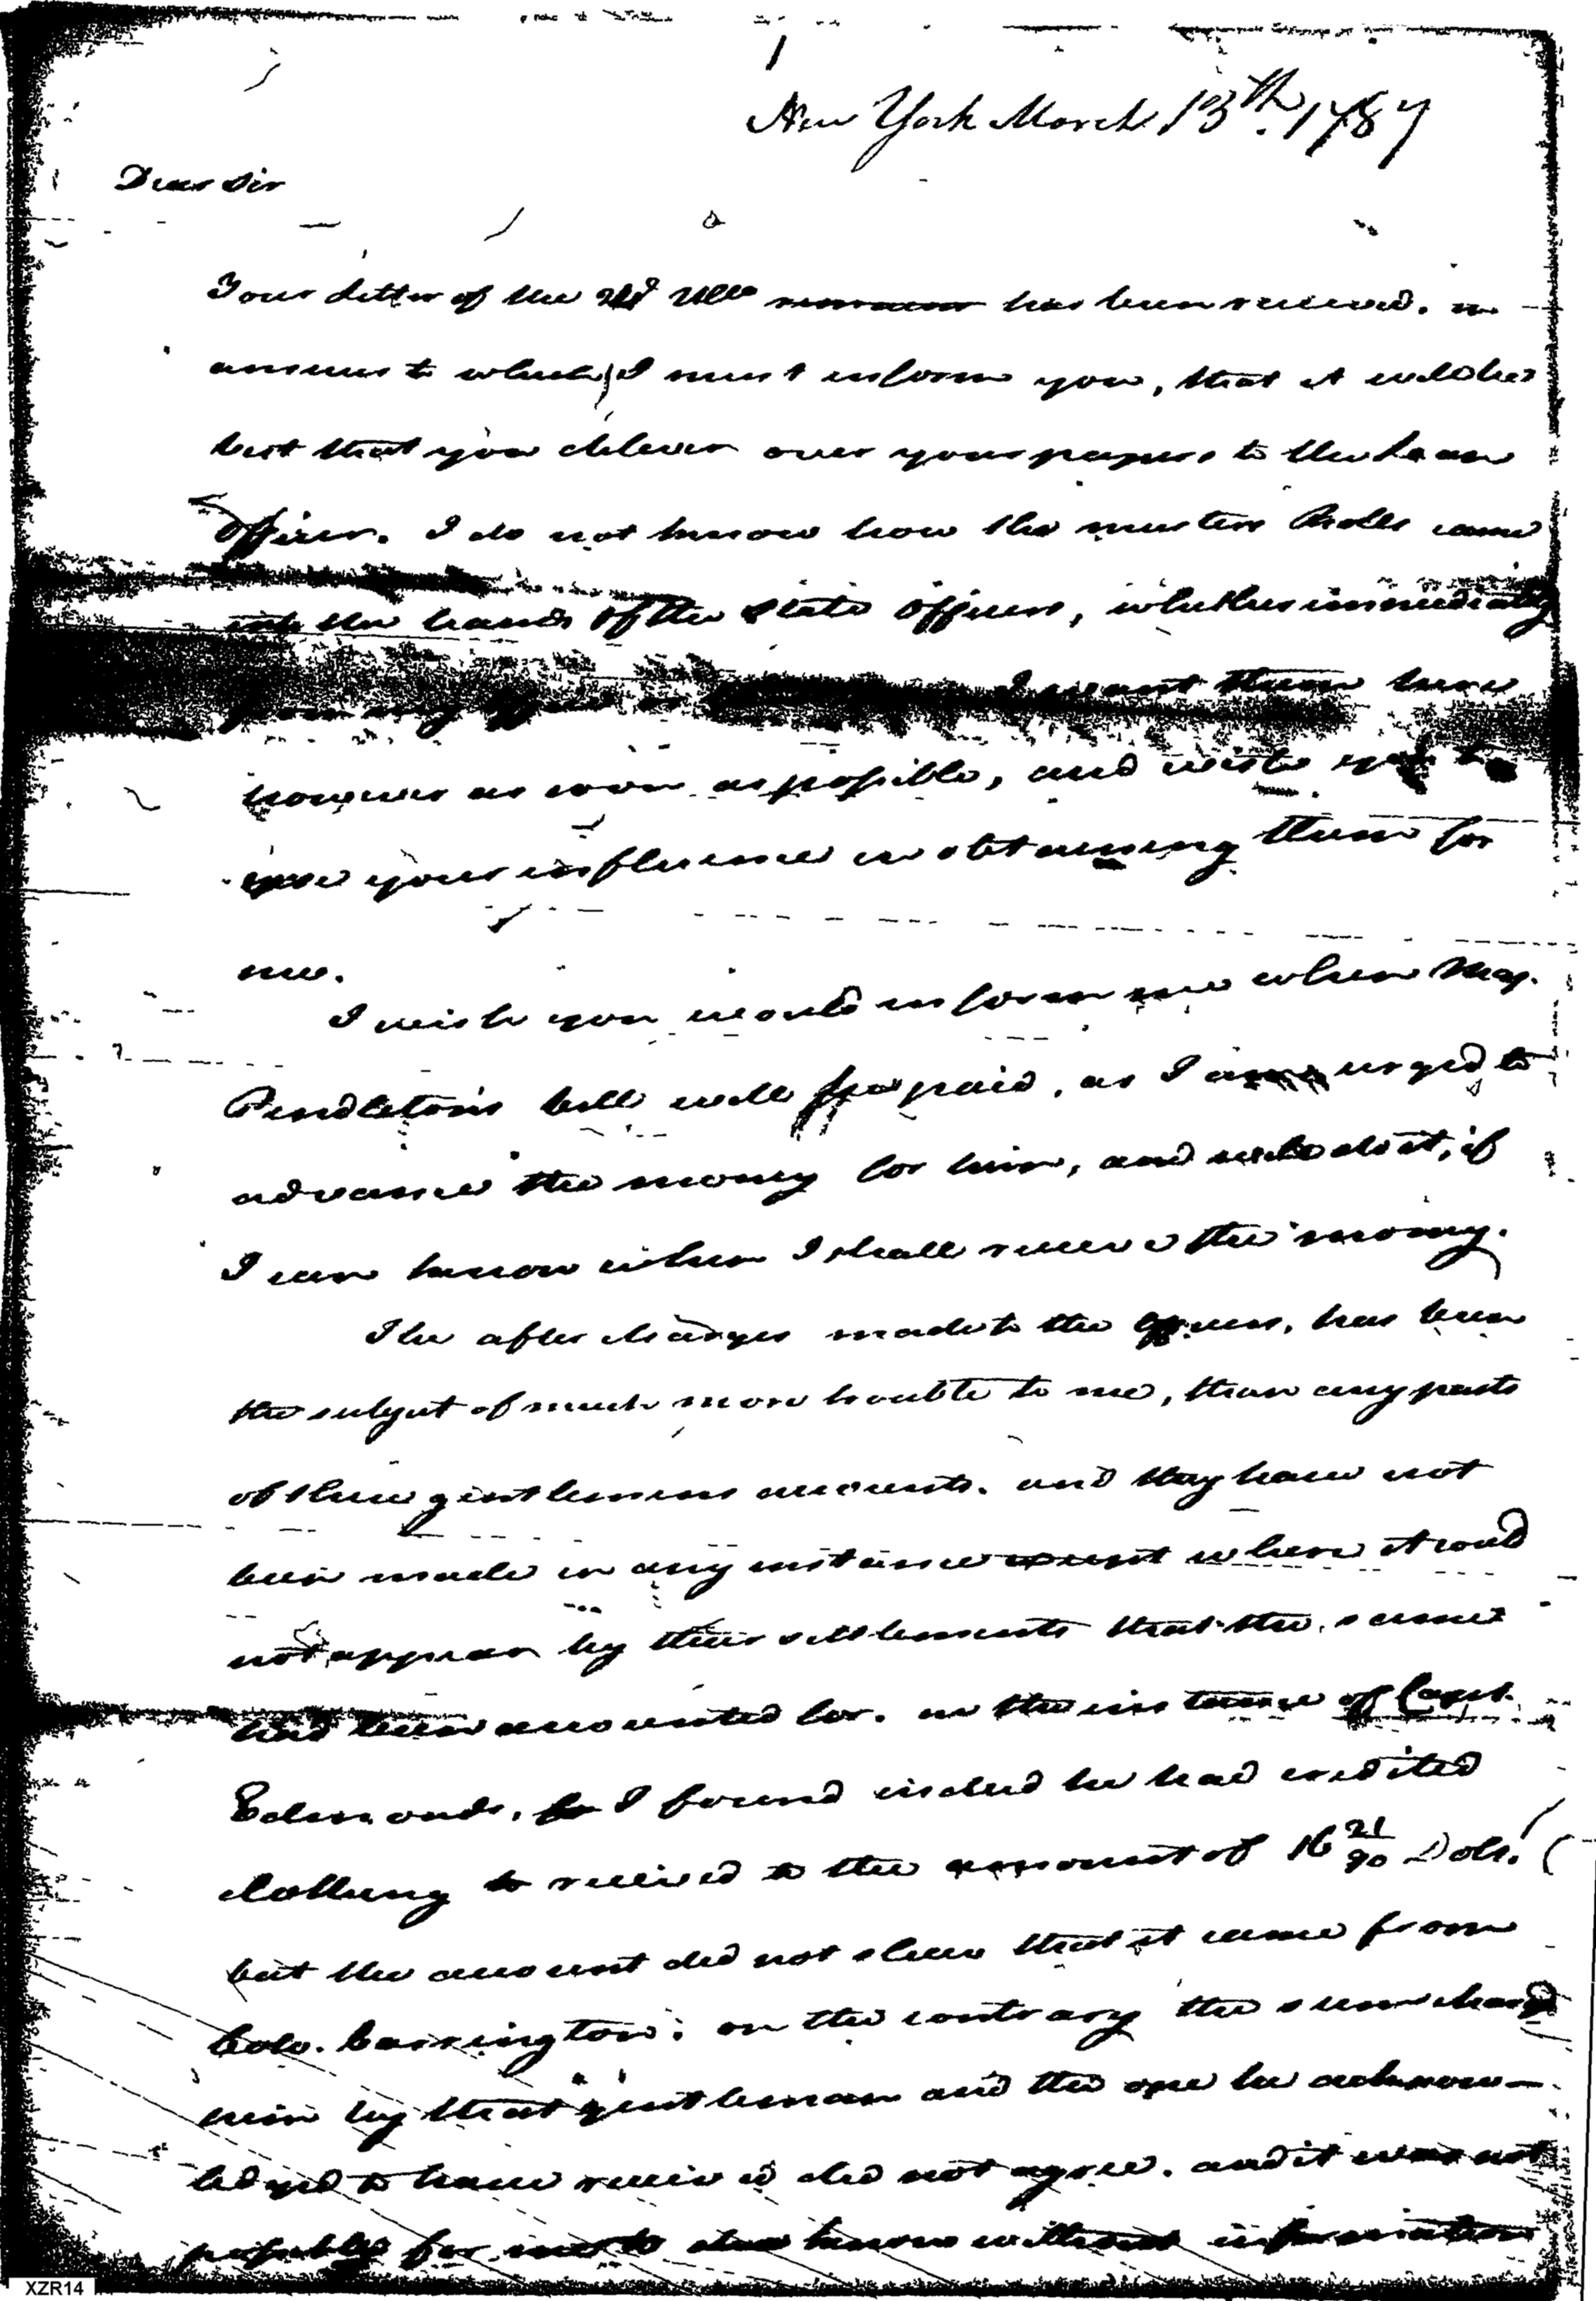 New York March 13th. 1787
Dear Sir
Your Letter of the Ulto has been received. in
answer to which, I must inform you, that it will be
best that you deliver over your papers to the Loan
Officer. I do not know how the muster Rolls came
into the hands of the State Officers, whether immediately
from my Office or I want them here
however as soon as possible, and wish you to
use your influence in obtaining them for
me.
I wish you would inform me when Maj.
Pendleton's bill will be paid, as I am urged to
advance the money for him, and will do it, if
I can know when I shall receive the money.
The after charges made to the Officers, has been
the subject of much more trouble to me, than any parts
of these gentlemens accounts. and they have not
been made in any instance except where it could
not appear by their settlements that the same
had been accounted for. in the instance of Capt.
Edmonds, I found indeed he had credited
clothing received to the amount of 16 21/90 Dolls.
but the account did not shew that it came from
Colo. Carrington; on the contrary the sum charged
him by that gentleman and the one he acknow-
ledged to have received did not agree. and it was not
possible for me to know without information
XZR14